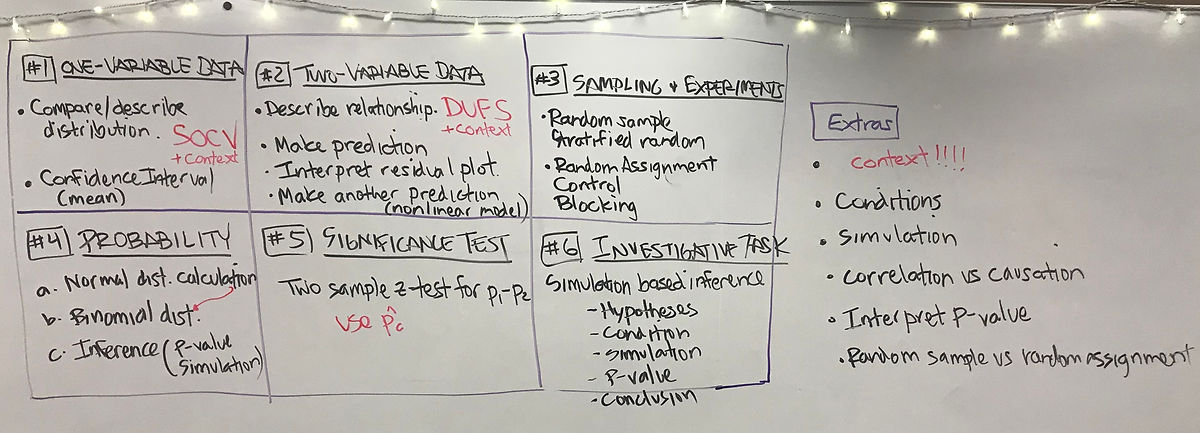 #1 ONE-VARIABLE DATA
• Compare/describe
distribution. SOCV
+ context
• Confidence Interval
(mean)
#2 TWO-VARIABLE DATA
• Describe relationship. DUFS
+ context
• Make prediction
• Interpret residual plot.
• Make another prediction
(nonlinear model)
#3 SAMPLING + EXPERIMENTS
• Random sample
Stratified random
• Random Assignment
Control
Blocking
#4 PROBABILITY
a. Normal dist. calculation
b. Binomial dist.
c. Inference (P-value
Simulation)
#5 SIGNIFICANCE TEST
Two sample z-test for p₁-p₂
use p̂c
#6 INVESTIGATIVE TASK
Simulation based inference
- Hypotheses
- Condition
- Simulation
- P-value
- Conclusion
Extras
• context!!!!
• Conditions
• Simulation
• Correlation vs causation
• Interpret P-value
• Random sample vs random assignment